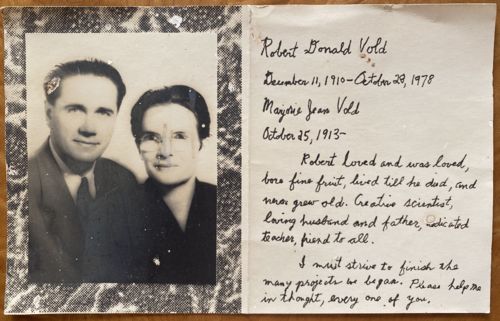 Robert Donald Vold
December 11, 1910-October 29, 1978
Marjorie Jean Vold
October 25, 1913-
Robert loved and was loved,
bore fine fruit, lived till he died, and
never grew old. Creative scientist,
loving husband and father, dedicated
teacher, friend to all.
I must strive to finish the
many projects we began. Please help me
in thought, every one of you.